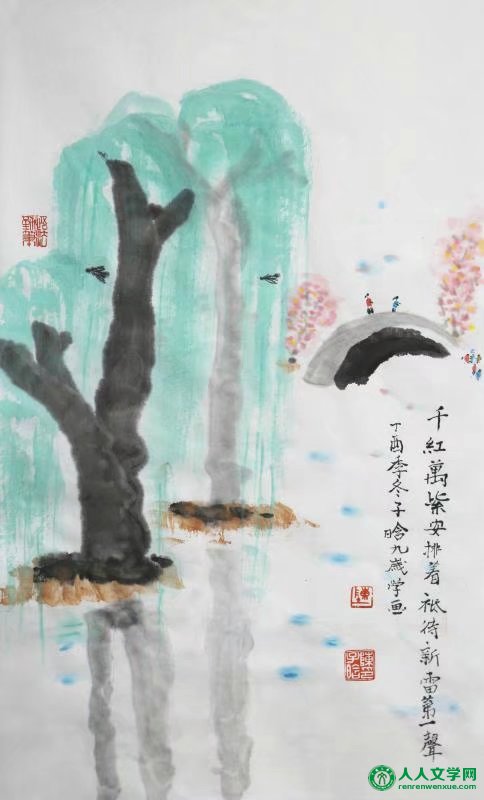 千紅萬紫安排着祗待新雷第一聲
丁酉季冬子晗九歲学画
人人文学网
renrenwenxue.com